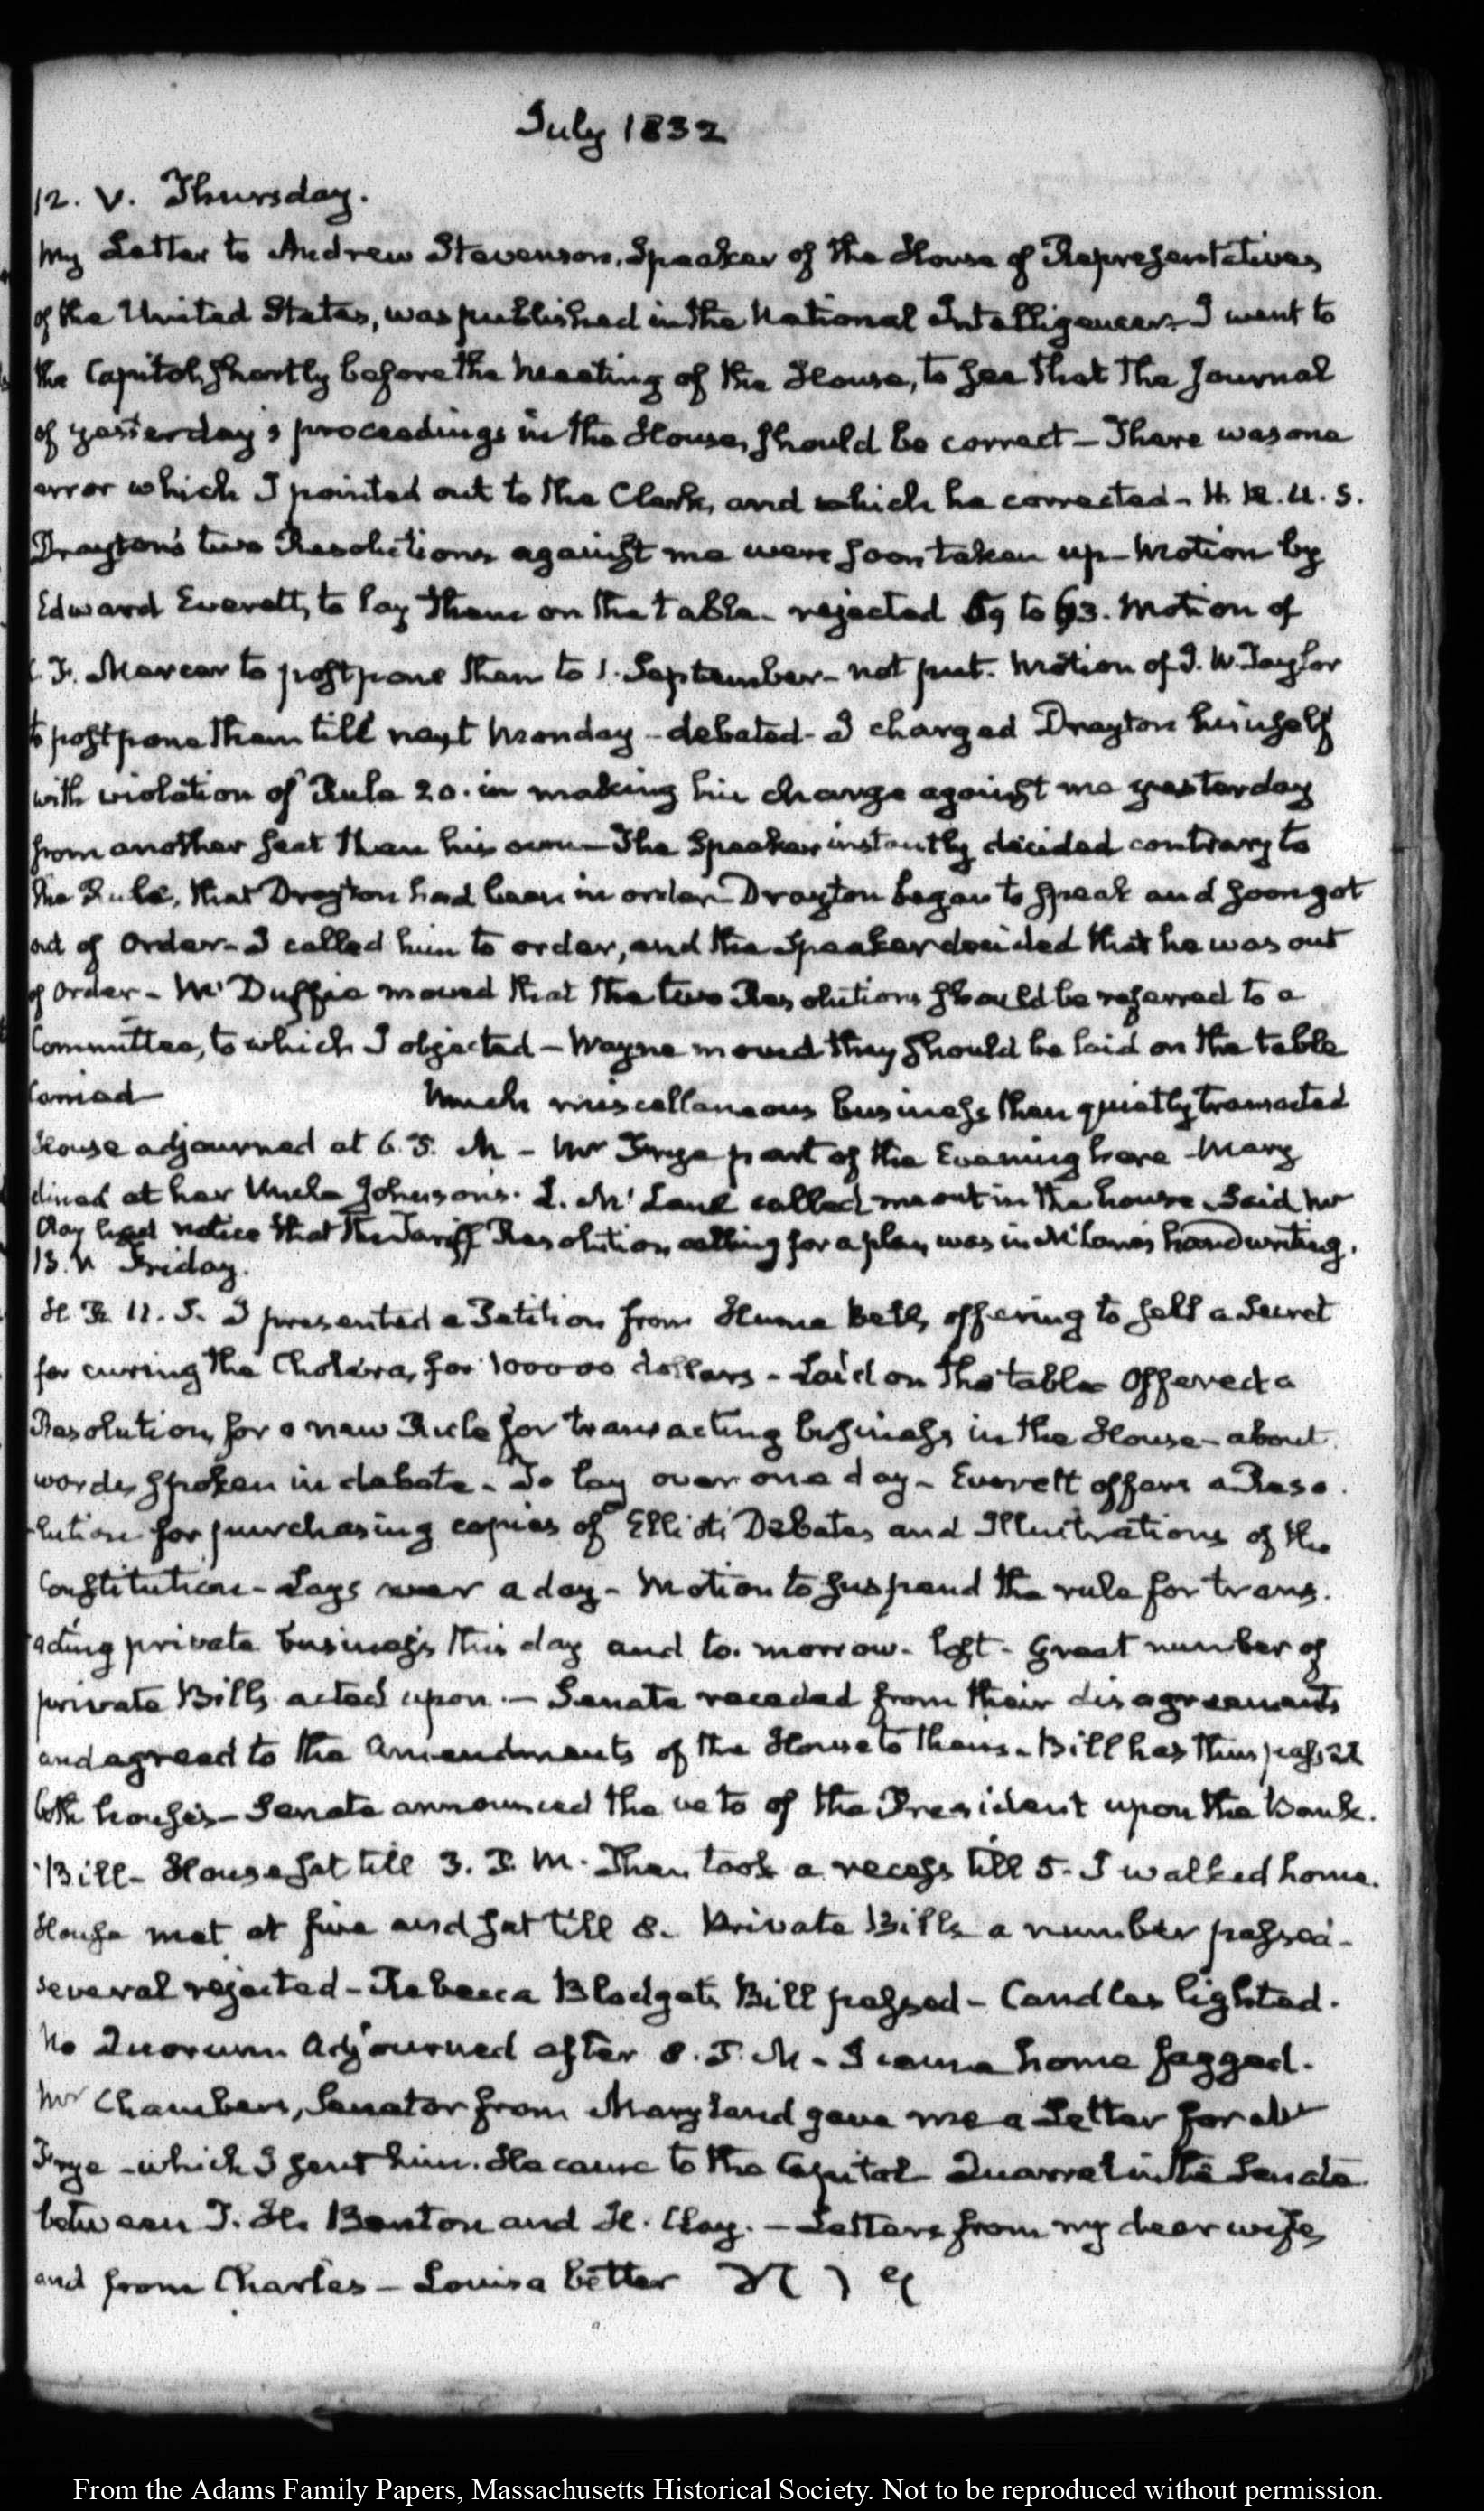 July 1832
12. V. Thursday.
My Letter to Andrew Stevenson, Speaker of the House of Representatives
of the United States, was published in the National Intelligencer. I went to
the Capitol, shortly before the meeting of the House, to see that the Journal
of yesterday's proceedings in the House, should be correct – There was one
error which I pointed out to the Clerk, and which he corrected – H. R. U. S.
Drayton's two Resolutions against me were soon taken up – Motion by
Edward Everett, to lay them on the table – rejected 59 to 63. Motion of
C. F. Mercer to postpone them to 1. September – not put. Motion of J. W. Taylor
to postpone them till next Monday – debated – I charged Drayton himself
with violation of Rule 20. in making his charge against me yesterday
from another seat than his own – The Speaker instantly decided contrary to
the Rule, that Drayton had been in order – Drayton began to speak and soon got
out of order – I called him to order, and the Speaker decided that he was out
of order – McDuffie moved that the two Resolutions should be referred to a
Committee, to which I objected – Wayne moved they should be laid on the table
Carried – Much miscellaneous business then quietly transacted
House adjourned at 6. P. M – Mr Frye part of the Evening here – Mary
dined at her Uncle Johnson's. L. McLane called me out in the house. Said Mr
Clay had notice that the Tariff Resolution calling for a plan was in McLane's handwriting.
13. VI. Friday.
H. R. U. S. I presented a Petition from Hume Bell, offering to sell a secret
for curing the Cholera, for 100000 dollars – Laid on the table – Offered a
Resolution, for a new Rule for transacting business in the House – about
words spoken in debate – To lay over one day – Everett offers a Reso
lution for purchasing copies of Elliot's Debates and Illustrations of the
Constitution – Lays over a day – Motion to suspend the rule for trans.
acting private business this day and to-morrow – lost – Great number of
private Bills acted upon – Senate receded from their disagreements
and agreed to the amendments of the House to theirs – Bill has thus passed
both houses – Senate announced the veto of the President upon the Bank.
Bill – House sat till 3. P. M. Then took a recess till 5. I walked home.
House met at five and sat till 8. Private Bills a number passed –
several rejected – Rebecca Blodget's Bill passed – Candles lighted.
No Quorum Adjourned after 8. P. M – I came home fagged.
Mr Chambers, Senator from Maryland gave me a Letter for Mr
Frye – which I sent him. He came to the Capitol – Quarrel in the Senate
between T. H. Benton and H. Clay. – Letters from my dear wife,
and from Charles – Louisa better
From the Adams Family Papers, Massachusetts Historical Society. Not to be reproduced without permission.